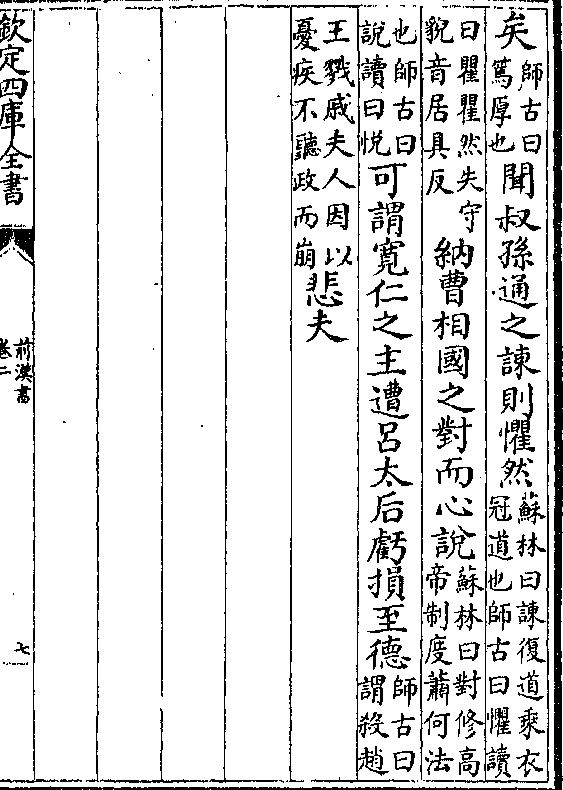 矣師古曰篤厚也聞叔孫通之諫則懼然蘇林曰諫復道乘衣冠道也師古曰懼讀
曰瞿瞿然失守貌音居具反納曹相國之對而心說蘇林曰對修高帝制度蕭何法
也師古曰說讀曰悅可謂寛仁之主遭呂太后虧損至德師古曰謂殺趙
王戮戚夫人因以憂疾不聽政而崩悲夫
欽定四庫全書
前漢書
卷二
七